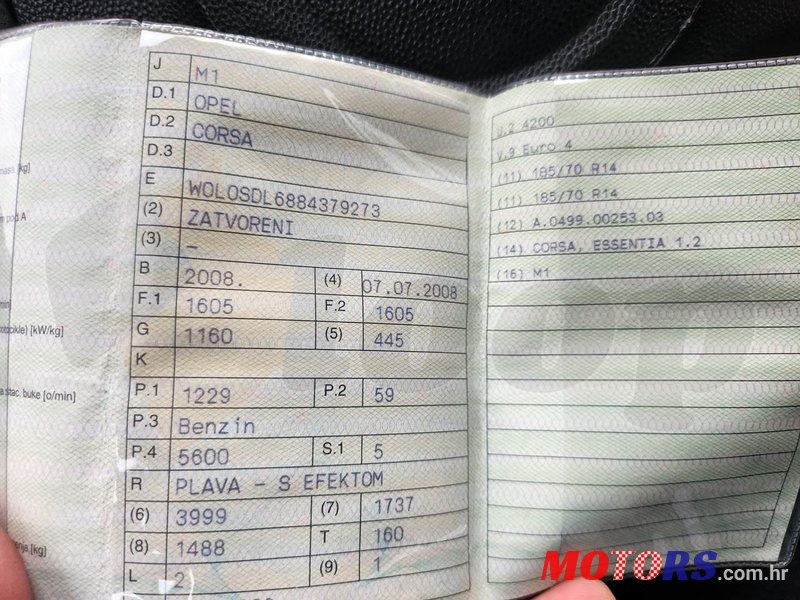 J M1
D.1 OPEL
D.2 CORSA
D.3
E WOLOSDL6884379273
(2) ZATVORENI
(3) –
B 2008. (4) 07.07.2008
F.1 1605 F.2 1605
G 1160 (5) 445
K
P.1 1229 P.2 59
P.3 Benzin
P.4 5600 S.1 5
R PLAVA – S EFEKTOM
(6) 3999 (7) 1737
(8) 1488 T 160
L 2 (9) 1
[kg]
pod A
[kW/kg]
stac. buke [o/min]
[kg]
U.2 4200
V.9 Euro 4
(11) 185/70 R14
(11) 185/70 R14
(12) A.0499.00253.03
(14) CORSA, ESSENTIA 1.2
(16) M1
MOTORS.com.hr